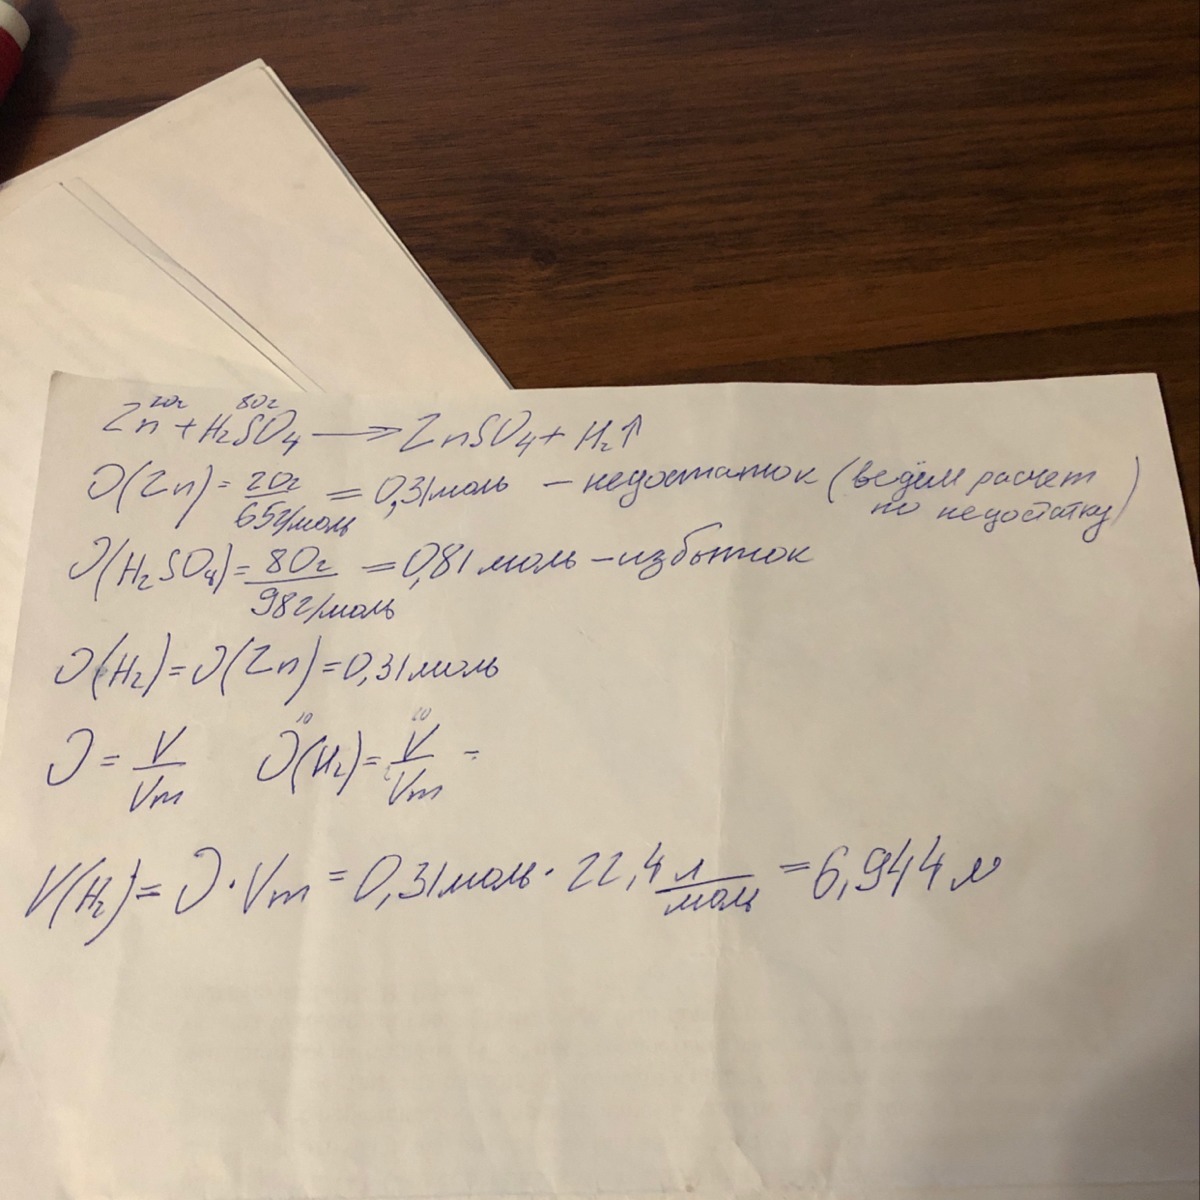 20г 80г
Zn + H₂SO₄ → ZnSO₄ + H₂↑
υ(Zn) = 20г/65г/моль = 0,31моль – недостаток (ведём расчет по недостатку)
υ(H₂SO₄) = 80г/98г/моль = 0,81моль – избыток
υ(H₂) = υ(Zn) = 0,31моль
υ = V/Vm υ(H₂) = V/Vm =
V(H₂) = υ · Vm = 0,31моль · 22,4 л/моль = 6,944 л